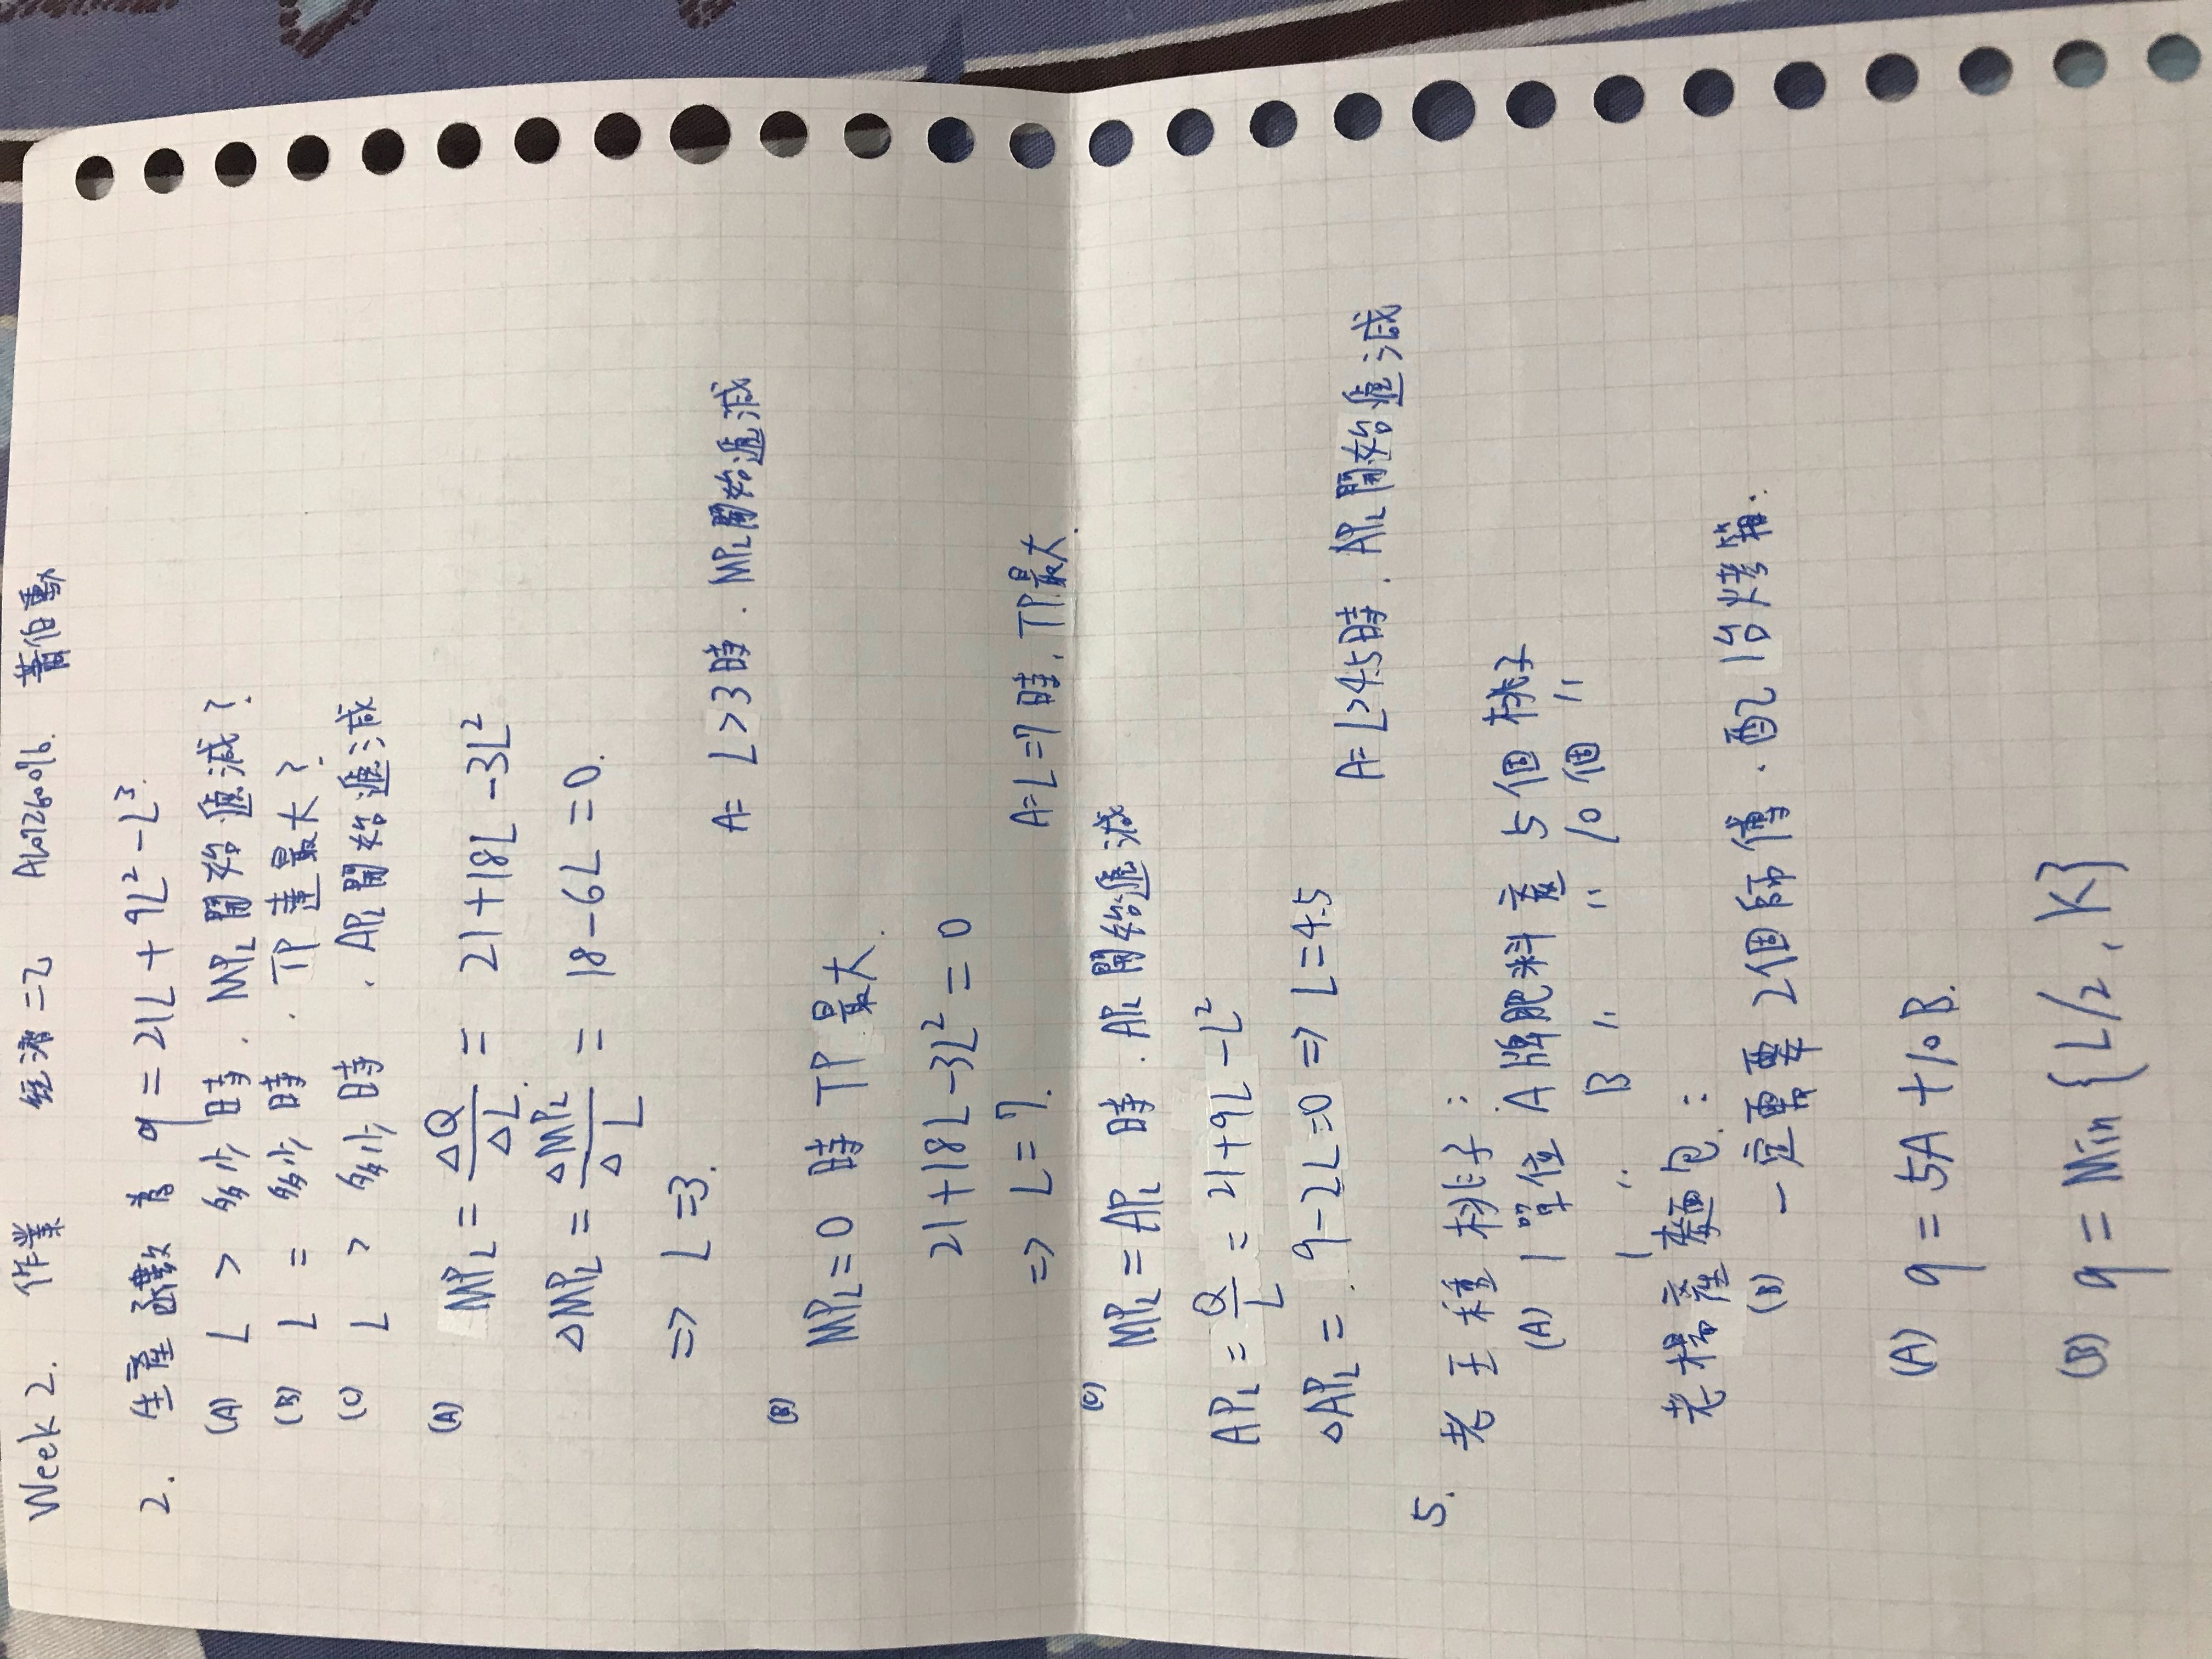 Week 2. 作業 經濟二乙 A107260076. 蕭伯勳
2. 生產函數為 q = 21L + 9L² - L³.
(A) L > 多少時. MPL 開始遞減?
(B) L = 多少時. TP 達最大?
(C) L > 多少時. APL 開始遞減
(A) MPL = ΔQ/ΔL = 21+18L-3L²
ΔMPL = ΔMPL/ΔL = 18-6L = 0.
=> L = 3.
A= L>3時. MPL開始遞減
(B)
MPL = 0 時 TP 最大.
21+18L-3L² = 0
=> L = 7.
A= L=7 時. TP最大.
(C)
MPL = APL 時. APL 開始遞減
APL = Q/L = 21+9L-L²
ΔAPL = 9-2L=0 => L=4.5
A= L>4.5時. APL 開始遞減
5. 老王種桃子:
(A) 1 單位 A牌肥料產 5個桃子
1 〃 B 〃 〃 10個 〃
老楊產麵包:
(B) 一定需要 2個師傅. 配 1台烤箱.
(A) q = 5A + 10B.
(B) q = Min {L/2, K}